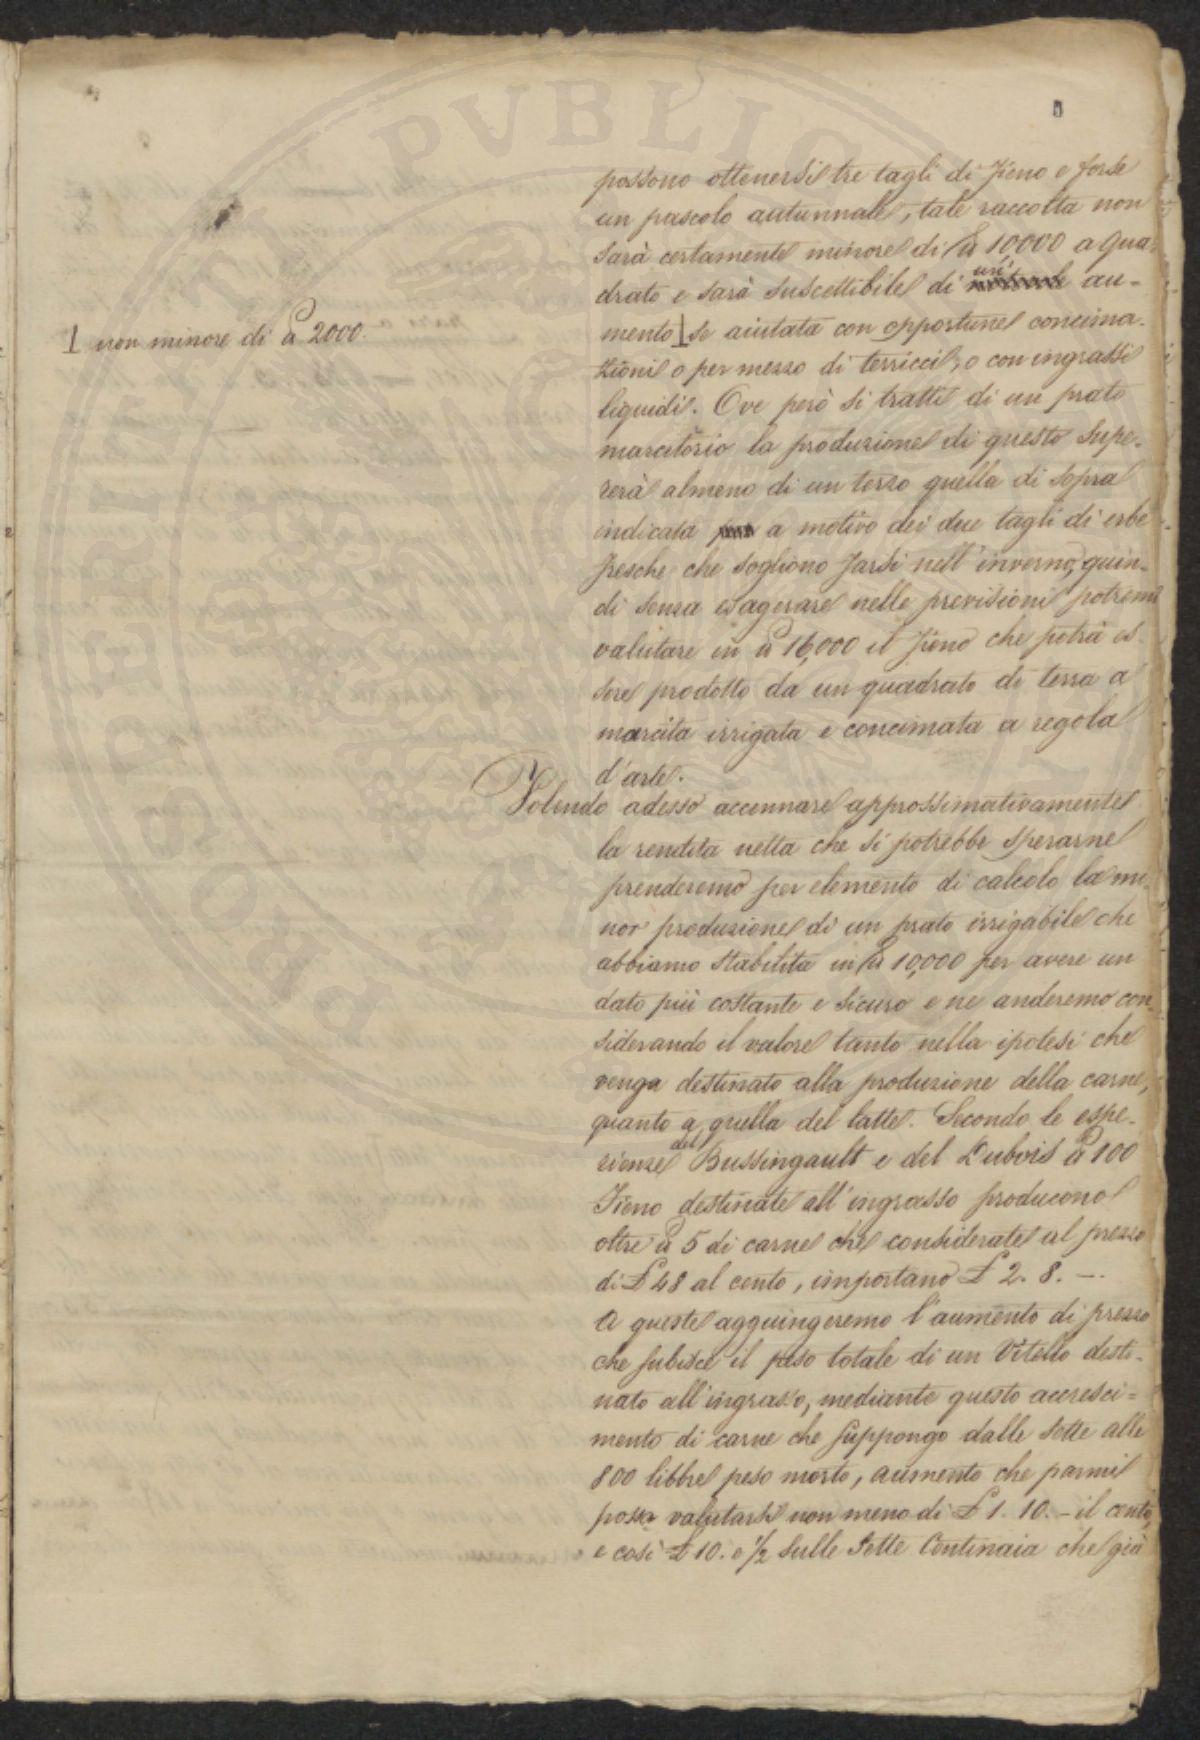 possono ottenersi tre tagli di Fieno e forse
un pascolo autunnale, tale raccolta non
sarà certamente minore di ℔ 10,000 a Qua-
drato e sarà suscettibile di un' au-
⊥ non minore di ℔ 2000.
mento ⊥ se aiutata con opportune concima-
zioni o per mezzo di terricci, o con ingrassi
liquidi. Ove però si tratti di un prato
marcitorio la produzione di questo supe-
rerà almeno di un terzo quella di sopra
indicata a motivo dei due tagli di erbe
fresche che sogliono farsi nell'inverno, quin-
di senza esagerare nelle previsioni potremo
valutare in ℔ 16,000 il Fieno che potrà es-
sere prodotto da un quadrato di terra a
marcita irrigata e concimata a regola
d'arte.
Volendo adesso accennare approssimativamente
la rendita netta che si potrebbe sperarne
prenderemo per elemento di calcolo la mi-
nor produzione di un prato irrigabile che
abbiamo stabilita in ℔ 10,000 per avere un
dato più costante e sicuro e ne anderemo con-
siderando il valore tanto nella ipotesi che
venga destinato alla produzione della carne,
quanto a quella del latte. Secondo le espe-
rienze del Bussingault e del Dubois ℔ 100
Fieno destinate all'ingrasso producono
oltre ℔ 5 di carne che considerate al prezzo
di £ 48 al cento, importano £ 2. 8. —.
A queste aggiungeremo l'aumento di prezzo
che subisce il peso totale di un Vitello desti-
nato all'ingrasso, mediante questo accresci-
mento di carne che suppongo dalle sette alle
800 libbre peso morto, aumento che parmi
possa valutarsi non meno di £ 1. 10. – il cento,
e così £ 10. e 1/2 sulle Sette Centinaia che già
PUBLIC